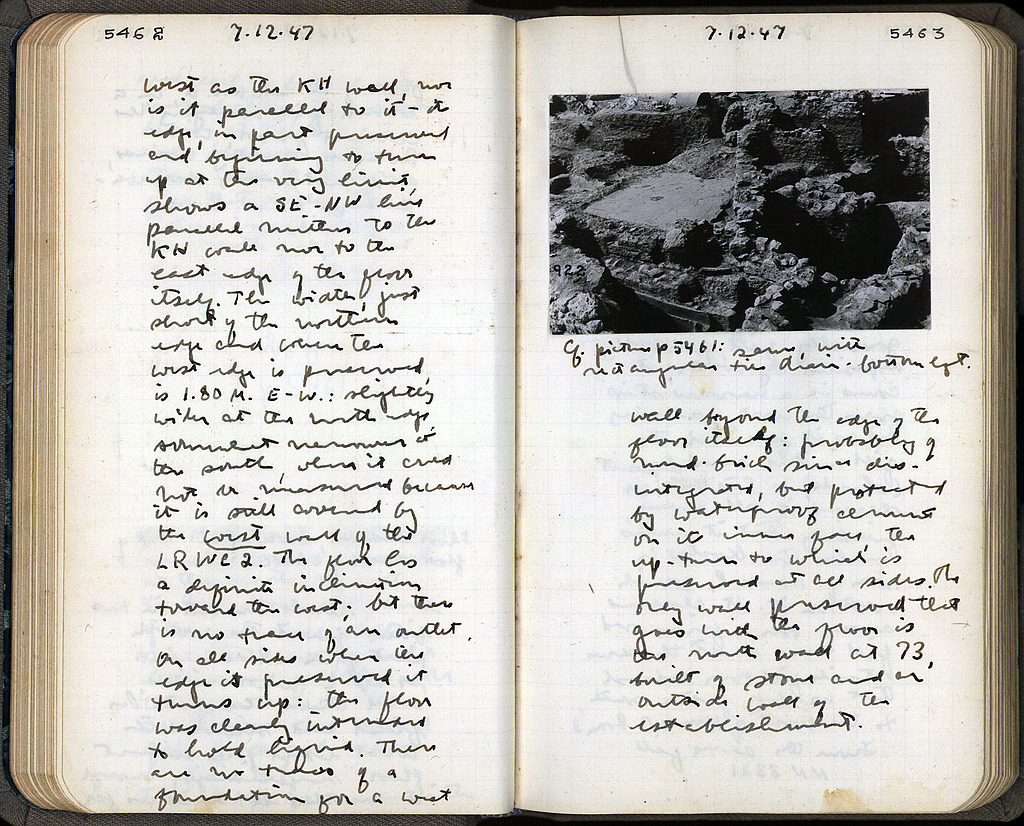 5462
7.12.47
west as the KH wall, nor
is it parallel to it - its
edge, in part preserved
and beginning to turn
up at the very limit,
shows a SE-NW line
parallel neither to the
KH wall nor to the
east edge of the floor
itself. The width, just
short of the northern
edge and where the
west edge is preserved,
is 1.80 M. E-W.: slightly
wider at the north edge,
somewhat narrower at
the south, where it could
not be measured because
it is still covered by
the west wall of the
LRWC2. The floor has
a definite inclination
toward the west. but there
is no trace of an outlet.
On all sides where the
edge is preserved it
turns up: the floor
was clearly intended
to hold liquid. There
are no traces of a
foundation for a west
7.12.47
5463
922
Cf. picture p 5461: same, with
rectangular tile drain - bottom left.
wall beyond the edge of the
floor itself: probably of
mud-brick since dis-
integrated, but protected
by waterproof cement
on its inner face the
up-turn to which is
preserved at all sides. The
only wall preserved that
goes with the floor is
the north wall at 73,
built of stone and an
outside wall of the
establishment.